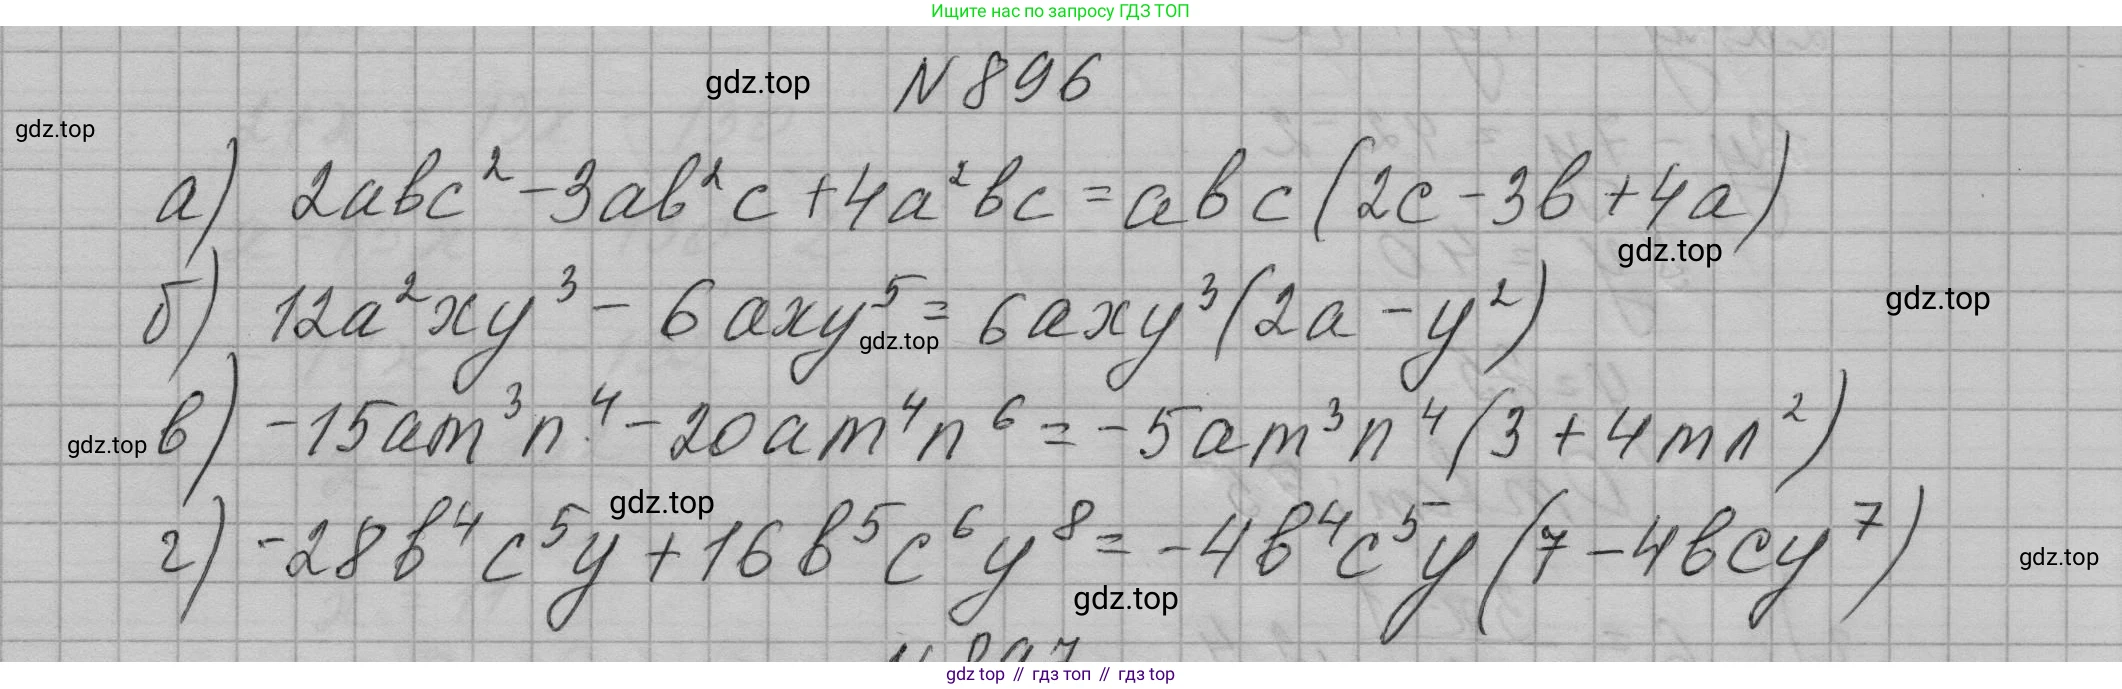 Ищите нас по запросу ГДЗ ТОП
gdz.top N 896
gdz.top
а) 2abc² - 3ab²c + 4a²bc = abc (2c - 3b + 4a)
gdz.top
б) 12a²xy³ - 6axy⁵ = 6axy³ (2a - y²)
gdz.top
gdz.top
в) -15am³n⁴ - 20am⁴n⁶ = -5am³n⁴ (3 + 4mn²)
gdz.top
gdz.top
г) -28b⁴c⁵y + 16b⁵c⁶y⁸ = -4b⁴c⁵y (7 - 4bcy⁷)
gdz.top
gdz.top
gdz.top // гдз топ // gdz top